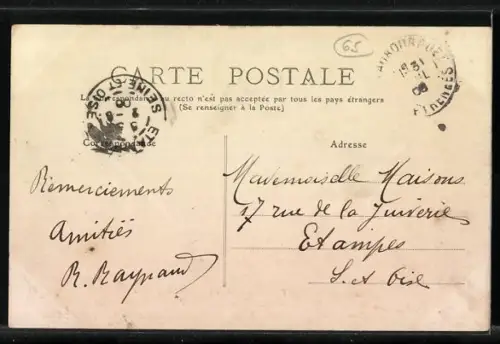 65
CARTE POSTALE
La Correspondance au recto n'est pas acceptée par tous les pays étrangers
(Se renseigner à la Poste)
Correspondance
Adresse
SEINE ET OISE
Remerciements
Amitiés
R. Raynaud
Mademoiselle Maisons
17 rue de la Juiverie
Etampes
S. et Oise